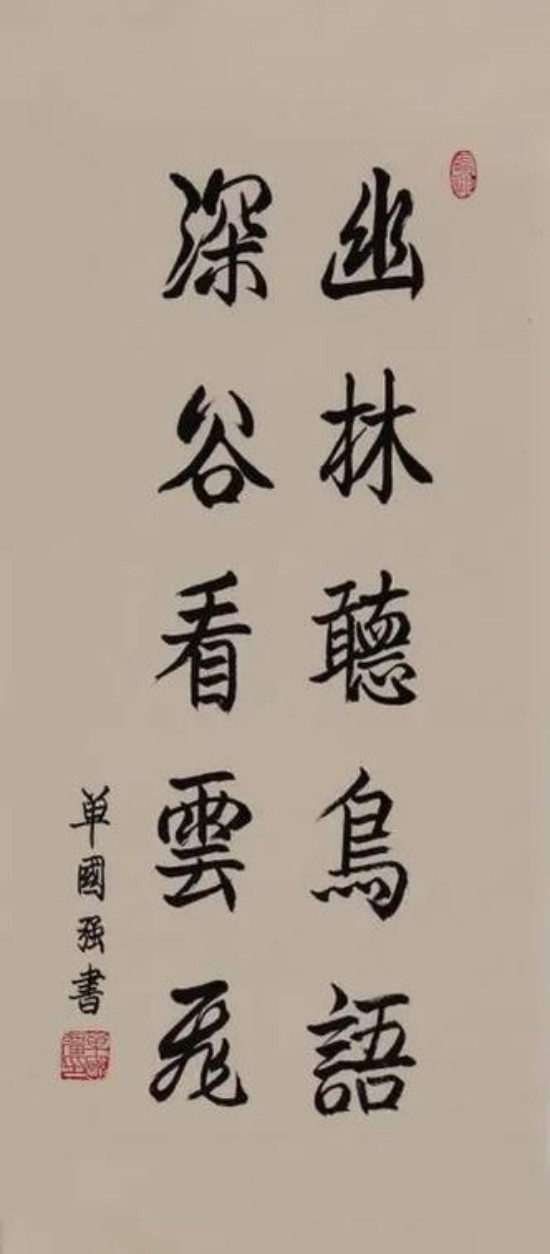 幽林聽鳥語
深谷看雲飛
单國强書